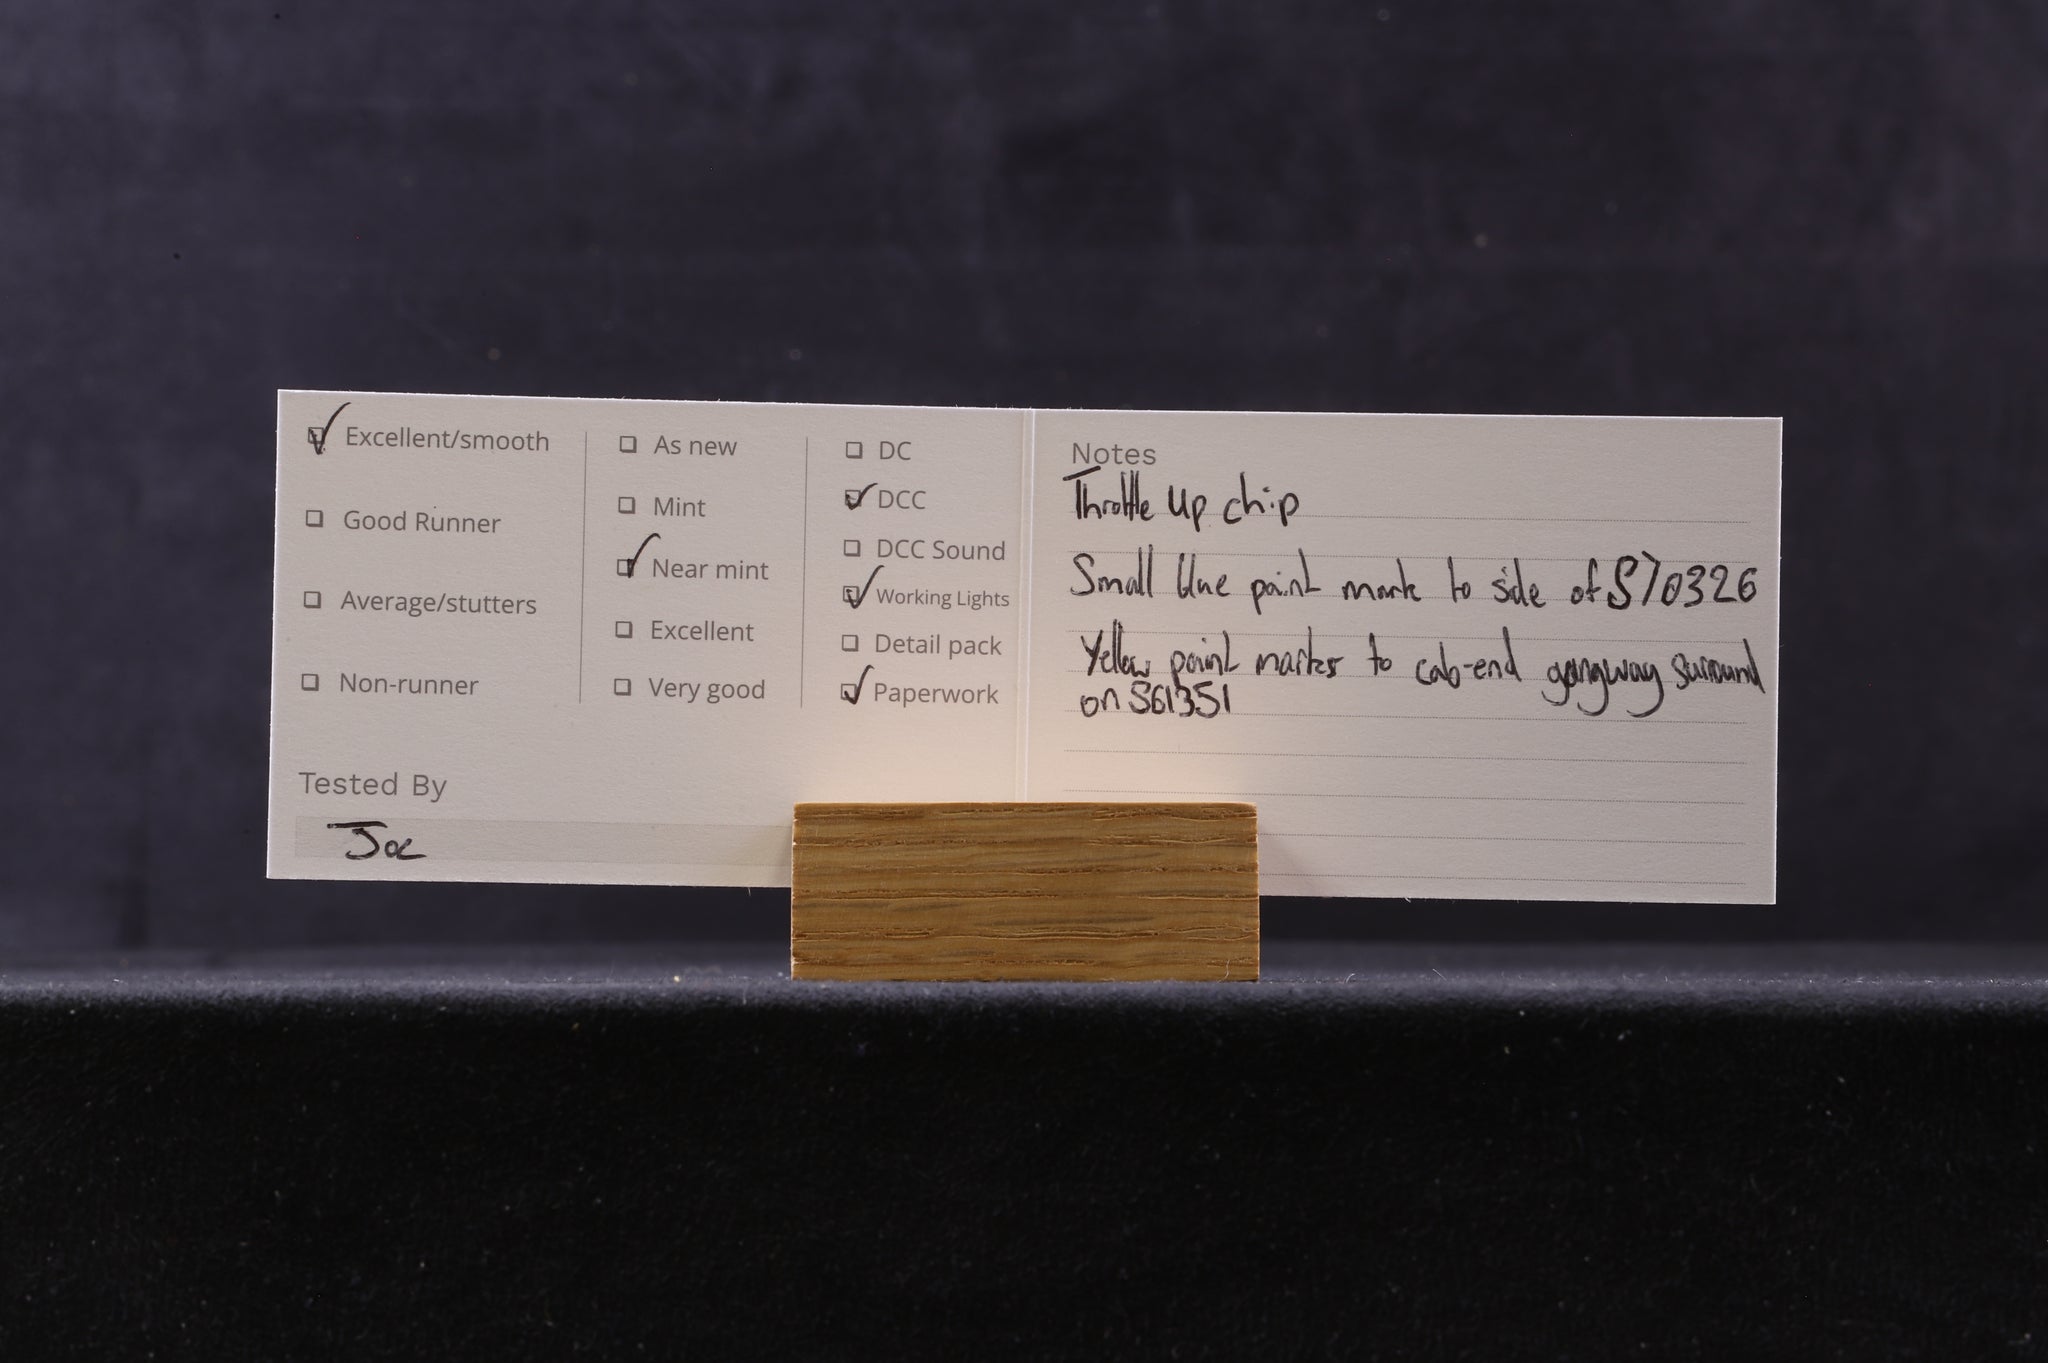 Excellent/smooth
Good Runner
Average/stutters
Non-runner
As new
Mint
Near mint
Excellent
Very good
DC
DCC
DCC Sound
Working Lights
Detail pack
Paperwork
Tested By
Joe
Notes
Throttle up chip
Small blue paint mark to side of S70326
Yellow paint marks to cab-end gangway surround
on S61351